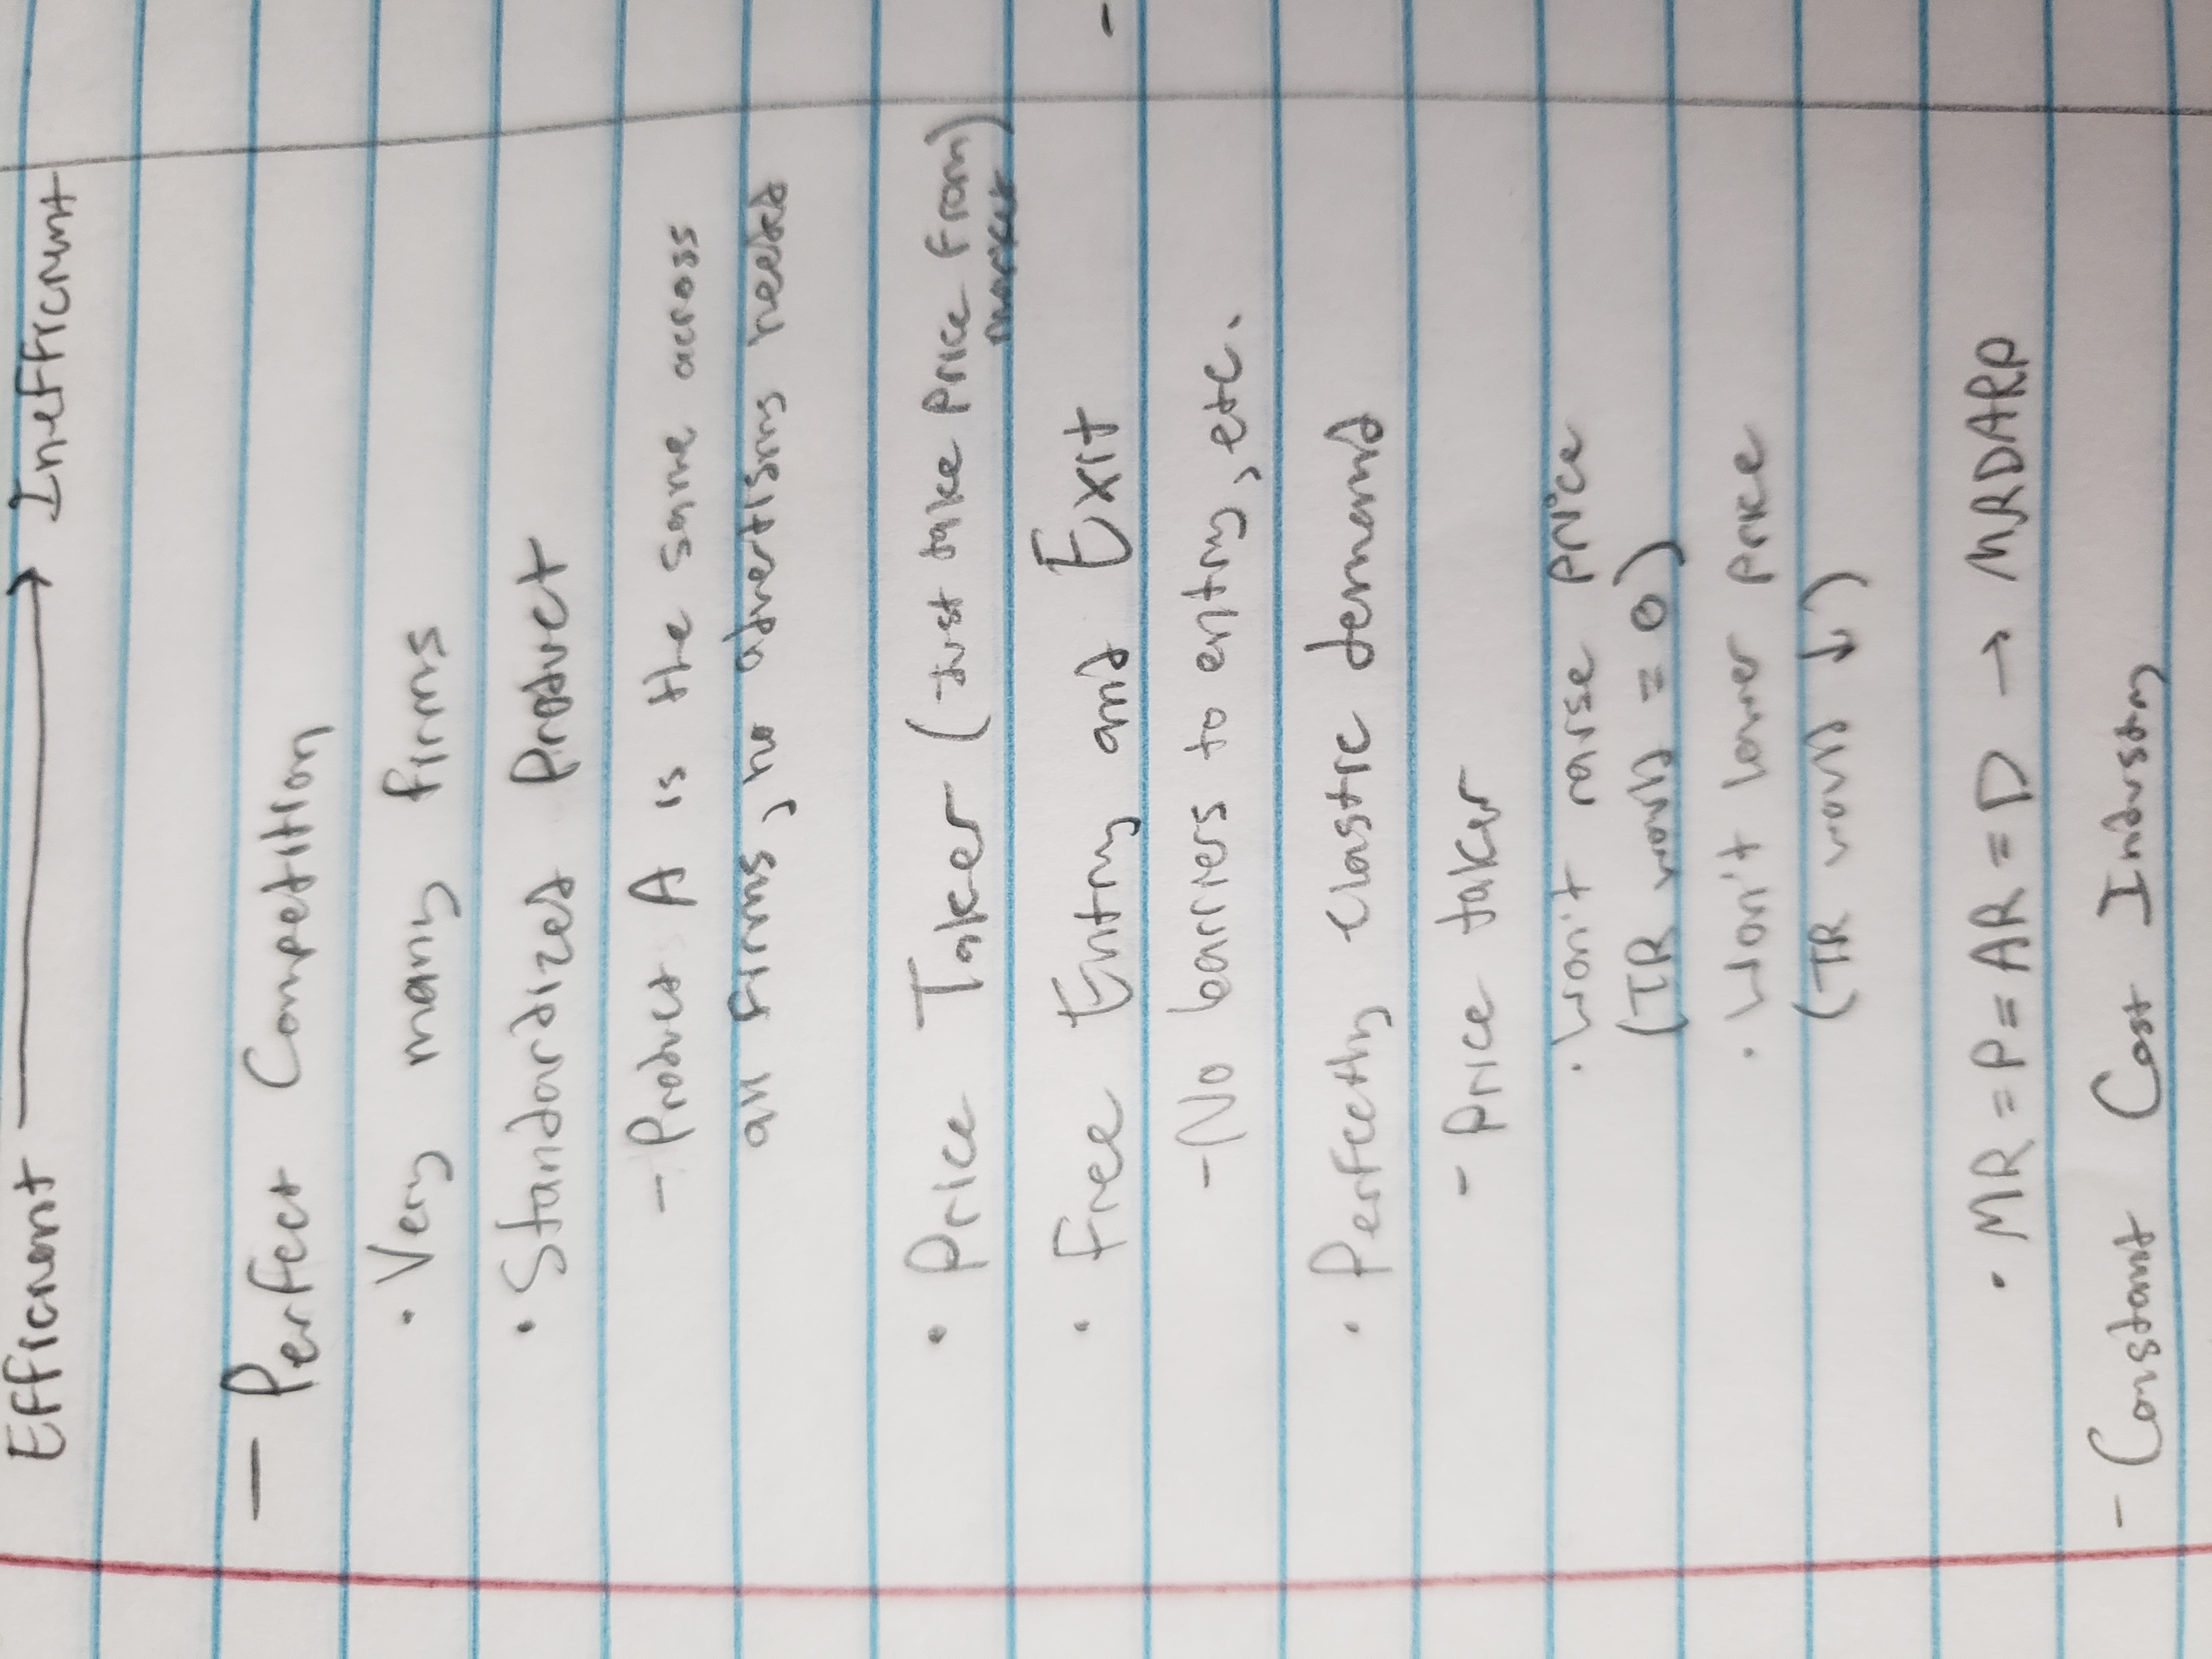 Efficient → Inefficient
- Perfect Competition
• Very many firms
• Standardized Product
- Product A is the same across
all firms, no advertising needed
• Price Taker (Just take price from
market)
• Free Entry and Exit
- No barriers to entry, etc.
• Perfectly elastic demand
- Price taker
• Won't raise price
(TR would = 0)
• Won't lower price
(TR would ↓)
• MR = P = AR = D → MRDARP
- Constant Cost Industry